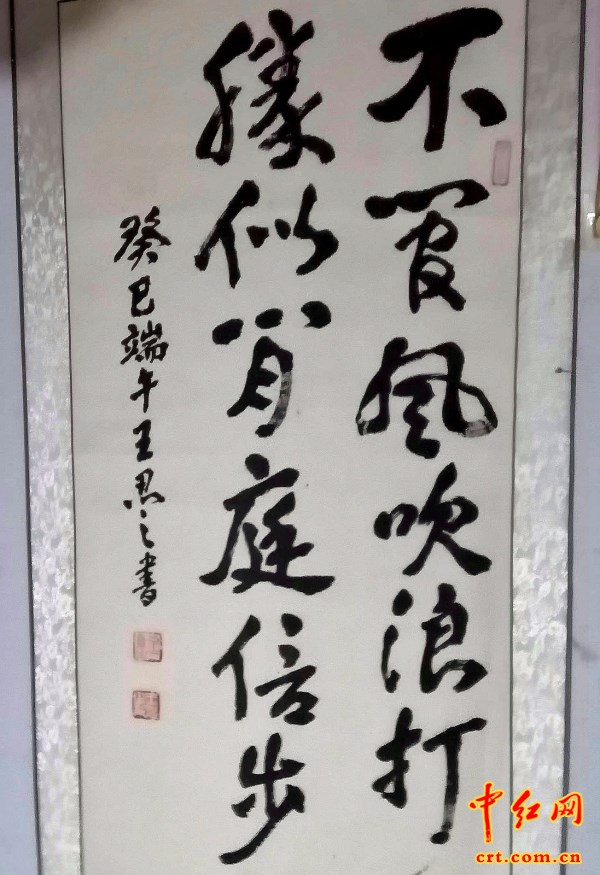 不管風吹浪打
勝似閒庭信步
癸巳端午王之書
中红网
crt.com.cn